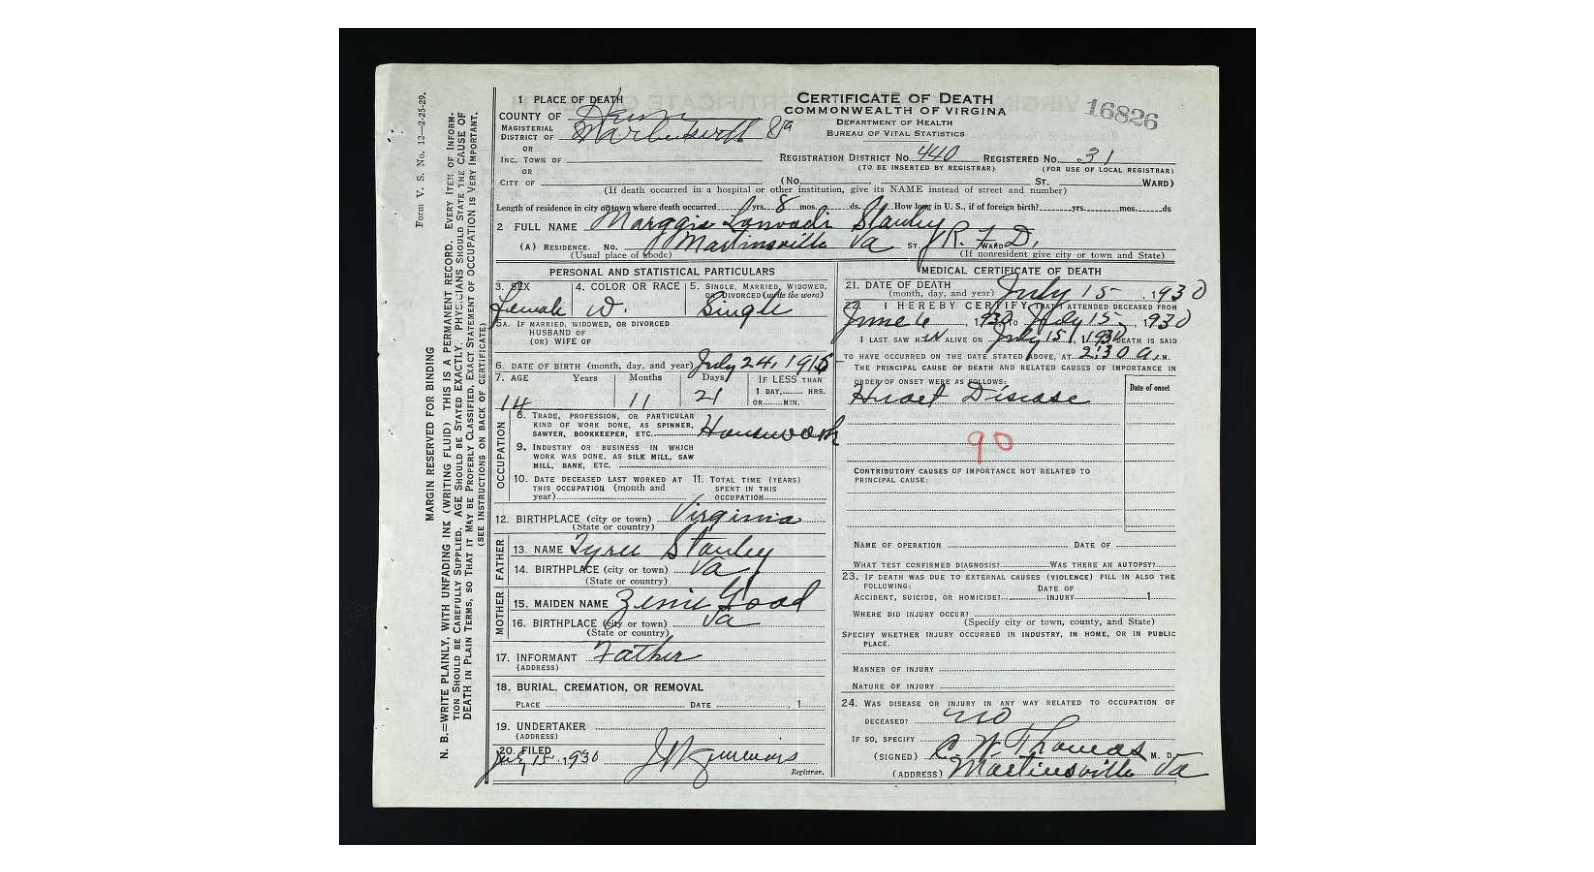 Form V. S. No. 12—2-25-29.
MARGIN RESERVED FOR BINDING
N. B.—WRITE PLAINLY, WITH UNFADING INK (WRITING FLUID) THIS IS A PERMANENT RECORD. EVERY ITEM OF INFORM-
TION SHOULD BE CAREFULLY SUPPLIED. AGE SHOULD BE STATED EXACTLY. PHYSICIANS SHOULD STATE THE CAUSE OF
DEATH IN PLAIN TERMS, SO THAT IT MAY BE PROPERLY CLASSIFIED. EXACT STATEMENT OF OCCUPATION IS VERY IMPORTANT.
(SEE INSTRUCTIONS ON BACK OF CERTIFICATE)
1 PLACE OF DEATH
COUNTY OF Henry
MAGISTERIAL DISTRICT OF Martinsville
OR
INC. TOWN OF
OR
CITY OF
CERTIFICATE OF DEATH
COMMONWEALTH OF VIRGINIA
DEPARTMENT OF HEALTH
BUREAU OF VITAL STATISTICS
16826
REGISTRATION DISTRICT NO. 440 REGISTERED NO. 31
(TO BE INSERTED BY REGISTRAR) (FOR USE OF LOCAL REGISTRAR)
(No. ST. WARD)
(If death occurred in a hospital or other institution, give its NAME instead of street and number)
Length of residence in city or town where death occurred yrs. 8 mos. ds. How long in U. S., if of foreign birth? yrs. mos. ds
2 FULL NAME Stanley
(A) RESIDENCE. No. Martinsville Va ST. R. F. D. WARD
(Usual place of abode) (If nonresident give city or town and State)
PERSONAL AND STATISTICAL PARTICULARS
3. SEX Female
4. COLOR OR RACE W.
5. SINGLE, MARRIED, WIDOWED, OR DIVORCED (write the word) Single
5A. IF MARRIED, WIDOWED, OR DIVORCED
HUSBAND OF
(OR) WIFE OF
6. DATE OF BIRTH (month, day, and year) July 24, 1915
7. AGE Years Months Days IF LESS THAN
1 DAY, HRS.
OR MIN.
14 11 21
OCCUPATION
8. TRADE, PROFESSION, OR PARTICULAR
KIND OF WORK DONE, AS SPINNER,
SAWYER, BOOKKEEPER, ETC. Housework
9. INDUSTRY OR BUSINESS IN WHICH
WORK WAS DONE, AS SILK MILL, SAW
MILL, BANK, ETC.
10. DATE DECEASED LAST WORKED AT
THIS OCCUPATION (month and
year)
11. TOTAL TIME (YEARS)
SPENT IN THIS
OCCUPATION
12. BIRTHPLACE (city or town) Virginia
(State or country)
FATHER
13. NAME Tyree Stanley
14. BIRTHPLACE (city or town) Va
(State or country)
MOTHER
15. MAIDEN NAME Good
16. BIRTHPLACE (city or town) Va
(State or country)
17. INFORMANT Father
(ADDRESS)
18. BURIAL, CREMATION, OR REMOVAL
PLACE DATE , 1
19. UNDERTAKER
(ADDRESS)
20. FILED July 15, 1930
Registrar.
MEDICAL CERTIFICATE OF DEATH
21. DATE OF DEATH
(month, day, and year) July 15, 1930
22. I HEREBY CERTIFY, THAT I ATTENDED DECEASED FROM
June 6, 1930, TO July 15, 1930
I LAST SAW HER ALIVE ON July 15, 1930 DEATH IS SAID
TO HAVE OCCURRED ON THE DATE STATED ABOVE, AT 2:30 a. M.
THE PRINCIPAL CAUSE OF DEATH AND RELATED CAUSES OF IMPORTANCE IN
ORDER OF ONSET WERE AS FOLLOWS:
Date of onset
Heart Disease
90
CONTRIBUTORY CAUSES OF IMPORTANCE NOT RELATED TO
PRINCIPAL CAUSE:
NAME OF OPERATION DATE OF
WHAT TEST CONFIRMED DIAGNOSIS? WAS THERE AN AUTOPSY?
23. IF DEATH WAS DUE TO EXTERNAL CAUSES (VIOLENCE) FILL IN ALSO THE
FOLLOWING:
DATE OF
ACCIDENT, SUICIDE, OR HOMICIDE? INJURY 1
WHERE DID INJURY OCCUR?
(Specify city or town, county, and State)
SPECIFY WHETHER INJURY OCCURRED IN INDUSTRY, IN HOME, OR IN PUBLIC
PLACE.
MANNER OF INJURY
NATURE OF INJURY
24. WAS DISEASE OR INJURY IN ANY WAY RELATED TO OCCUPATION OF
DECEASED? no
IF SO, SPECIFY
(SIGNED) C. W. Thomas M. D.
(ADDRESS) Martinsville Va